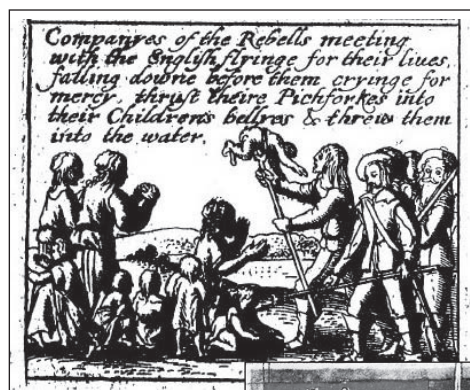 Companyes of the Rebells meeting
with the English flyinge for their lives
falling downe before them cryinge for
mercy, thrust theire Pichforkes into
their Childrens bellyes & threw them
into the water.